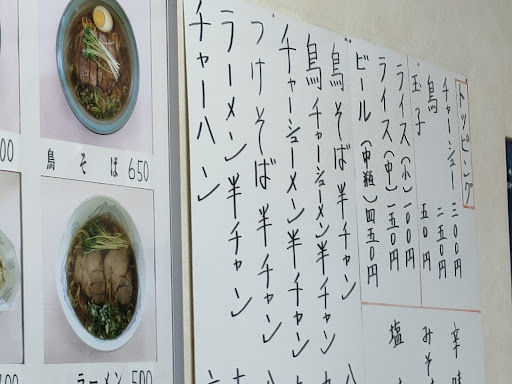 トッピング
チャーシュー 三〇〇円
鳥 二五〇円
玉子 五〇円
ライス(小) 一〇〇円
ライス(中) 一五〇円
ビール(中瓶) 四五〇円
辛
みそ
塩
鳥そば半チャン
鳥チャーシューメン半チャン
チャーシューメン半チャン
つけそば半チャン
ラーメン半チャン
チャーハン
鳥そば650
ラーメン500
00
700